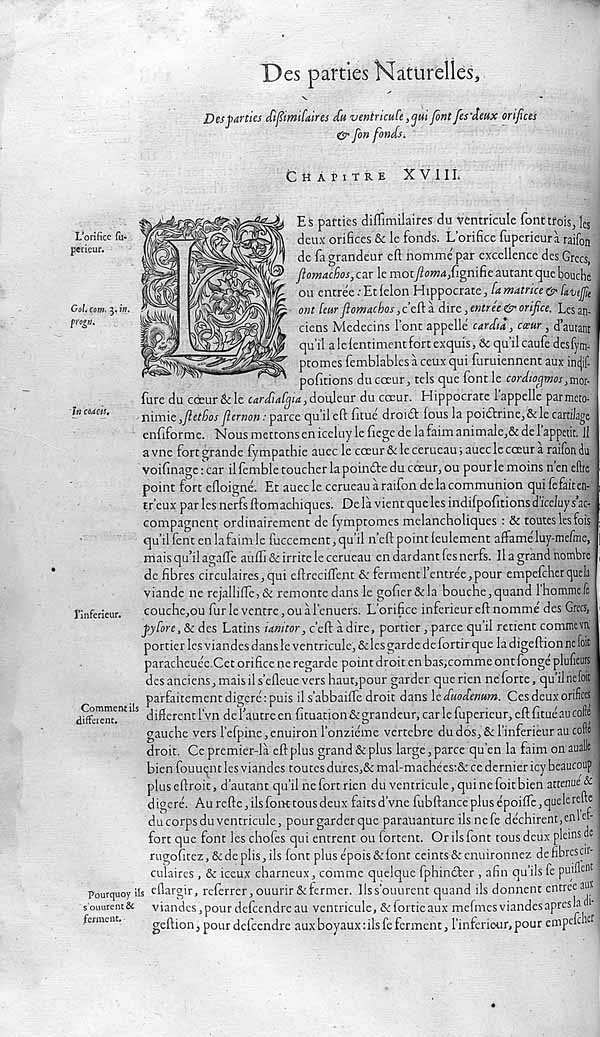 Des parties Naturelles,
Des parties dißimilaires du ventricule, qui sont ses deux orifices
& son fonds.
CHAPITRE XVIII.
L'orifice su-
perieur.
LEs parties dissimilaires du ventricule sont trois, les
deux orifices & le fonds. L'orifice superieur à raison
de sa grandeur est nommé par excellence des Grecs,
stomachos, car le mot stoma, signifie autant que bouche
ou entrée: Et selon Hippocrate, la matrice & la vessie
Gal. com. 3. in.
progn.
ont leur stomachos, c'est à dire, entrée & orifice. Les an-
ciens Medecins l'ont appellé cardia, cœur, d'autant
qu'il a le sentiment fort exquis, & qu'il cause des sym-
ptomes semblables à ceux qui suruiennent aux indis-
positions du cœur, tels que sont le cordiogmos, mor-
sure du cœur & le cardialgia, douleur du cœur. Hippocrate l'appelle par meto-
In coacis.
nimie, stethos sternon: parce qu'il est situé droict sous la poictrine, & le cartilage
ensiforme. Nous mettons en iceluy le siege de la faim animale, & de l'appetit. Il
a vne fort grande sympathie auec le cœur & le cerueau; auec le cœur à raison du
voisinage: car il semble toucher la poincte du cœur, ou pour le moins n'en estre
point fort esloigné. Et auec le cerueau à raison de la communion qui se fait en-
tr'eux par les nerfs stomachiques. De là vient que les indispositions d'iceluy s'ac-
compagnent ordinairement de symptomes melancholiques: & toutes les fois
qu'il sent en la faim le succement, qu'il n'est point seulement affamé luy-mesme,
mais qu'il agasse aussi & irrite le cerueau en dardant ses nerfs. Il a grand nombre
de fibres circulaires, qui estrecissent & ferment l'entrée, pour empescher que la
viande ne rejallisse, & remonte dans le gosier & la bouche, quand l'homme se
l'inferieur.
couche, ou sur le ventre, ou à l'enuers. L'orifice inferieur est nommé des Grecs,
pylore, & des Latins ianitor, c'est à dire, portier, parce qu'il retient comme vn
portier les viandes dans le ventricule, & les garde de sortir que la digestion ne soit
paracheuée. Cet orifice ne regarde point droit en bas, comme ont songé plusieurs
des anciens, mais il s'esleue vers haut, pour garder que rien ne sorte, qu'il ne soit
parfaitement digeré: puis il s'abbaisse droit dans le duodenum. Ces deux orifices
Comment ils
different.
different l'vn de l'autre en situation & grandeur, car le superieur, est situé au costé
gauche vers l'espine, enuiron l'onziéme vertebre du dos, & l'inferieur au costé
droit. Ce premier-là est plus grand & plus large, parce qu'en la faim on aualle
bien souuent les viandes toutes dures, & mal-machées: & ce dernier icy beaucoup
plus estroit, d'autant qu'il ne sort rien du ventricule, qui ne soit bien attenué &
digeré. Au reste, ils sont tous deux faits d'vne substance plus époisse, que le reste
du corps du ventricule, pour garder que parauanture ils ne se déchirent, en l'ef-
fort que font les choses qui entrent ou sortent. Or ils sont tous deux pleins de
rugositez, & de plis, ils sont plus épois & sont ceints & enuironnez de fibres cir-
culaires, & iceux charneux, comme quelque sphincter, afin qu'ils se puissent
Pourquoy ils
s'ouurent &
ferment.
eslargir, resserrer, ouurir & fermer. Ils s'ouurent quand ils donnent entrée aux
viandes, pour descendre au ventricule, & sortie aux mesmes viandes apres la di-
gestion, pour descendre aux boyaux: ils se ferment, l'inferieur, pour empescher